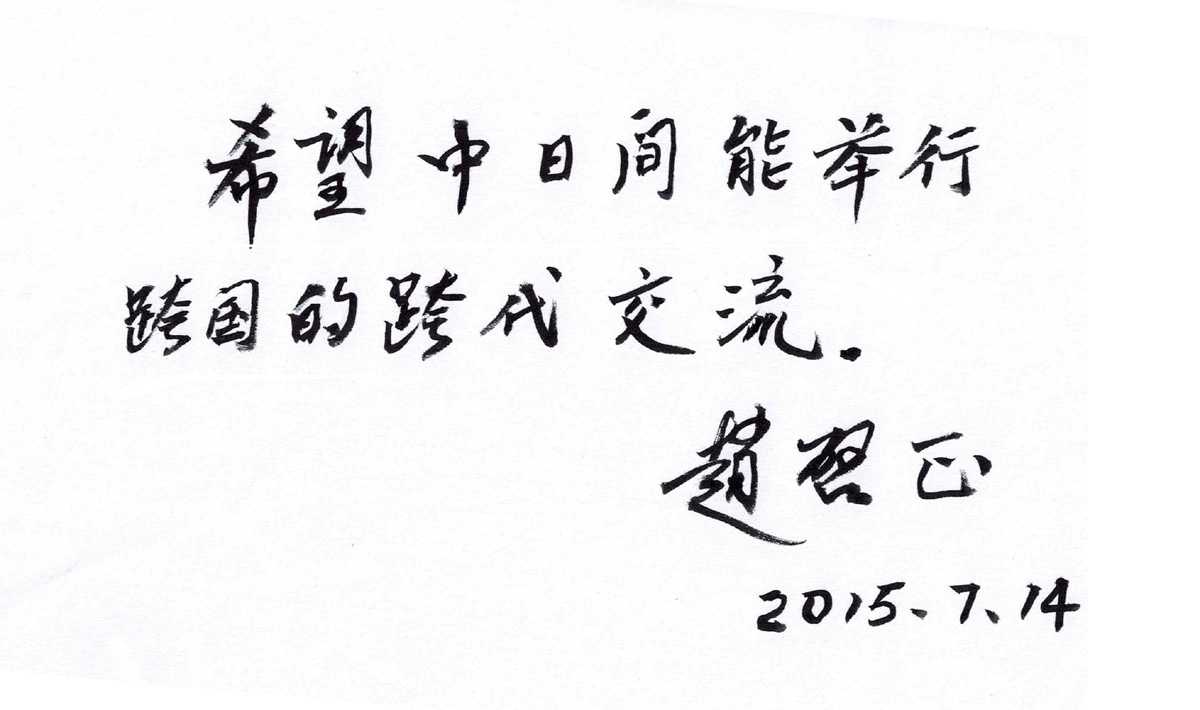 希望中日间能举行
跨国的跨代交流.
趙啓正
2015、7、14